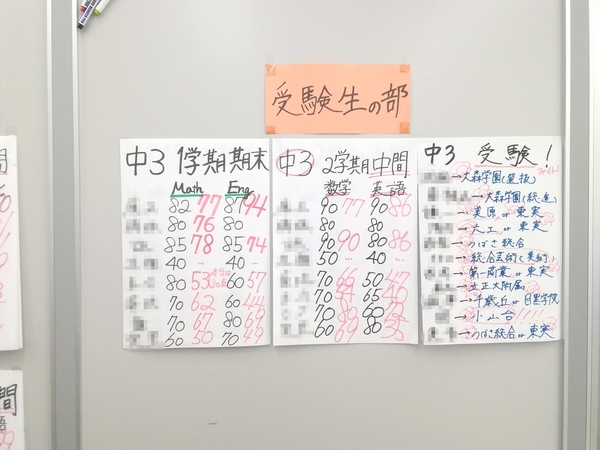 受験生の部
中3 1学期期末
Math Eng
82 77 87 94
80 76 80
85 78 85 74
40 - 40 -
80 53 60 57
70 62 60 44
70 67 80 65
50 50 70 49
中3 2学期中間
数学 英語
90 77 90 86
80 80
90 90 80 86
50 … 40 …
70 66 50 47
70 54 65 40
70 60 80
60 69 80 55
中3 受験!
→大森学園(選抜)
→大森学園(総進)
→美原or東実
→大工or東実
→つばさ総合
→総合芸術(美術)
→第一商業or東実
→立正大附属
→千歳丘or目黒学院
→小山台!!!!
→つばさ総合or東実
間